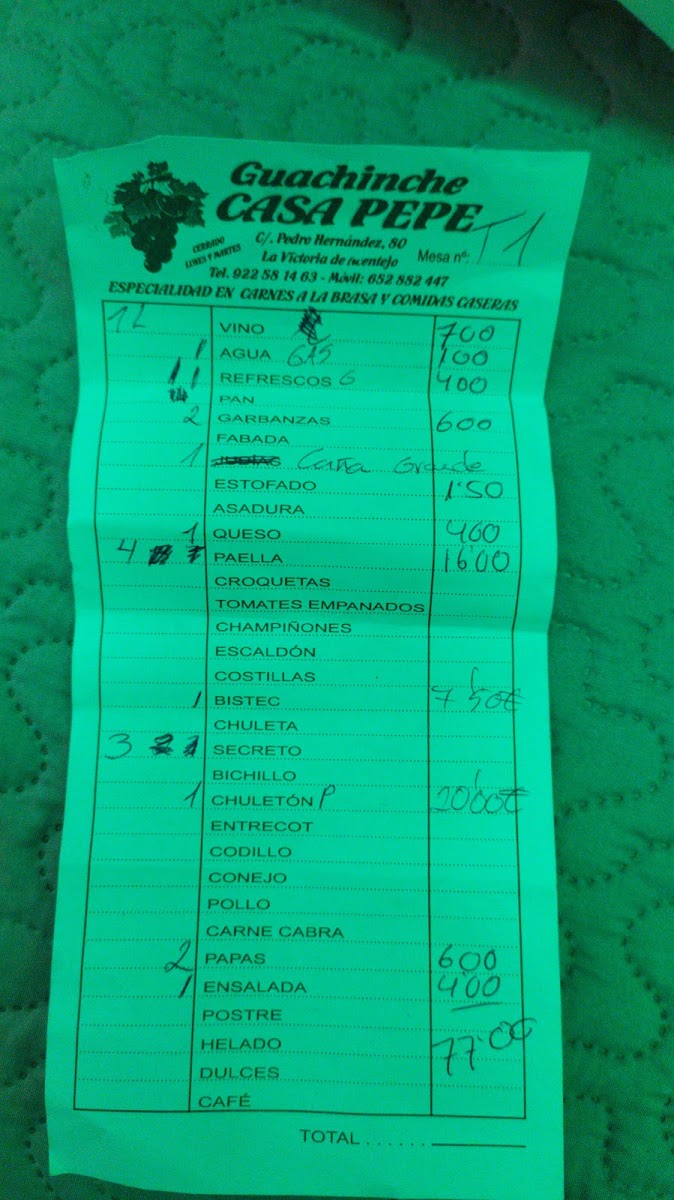 Guachinche
CASA PEPE
CERRADO LUNES Y MARTES
C/. Pedro Hernández, 80
La Victoria de Acentejo
Mesa nº: T1
Tel. 922 58 14 63 - Móvil: 652 882 447
ESPECIALIDAD EN CARNES A LA BRASA Y COMIDAS CASERAS
1L VINO 700
1 AGUA GAS 100
1 1 REFRESCOS 6 400
PAN
2 GARBANZAS 600
FABADA
1 JUDÍAS Caña Grande
ESTOFADO 1'50
ASADURA
1 QUESO 400
4 PAELLA 16'00
CROQUETAS
TOMATES EMPANADOS
CHAMPIÑONES
ESCALDÓN
COSTILLAS
1 BISTEC 7'50€
CHULETA
3 SECRETO
BICHILLO
1 CHULETÓN P 20'00€
ENTRECOT
CODILLO
CONEJO
POLLO
CARNE CABRA
2 PAPAS 600
1 ENSALADA 400
POSTRE
HELADO 77'0€
DULCES
CAFÉ
TOTAL ......